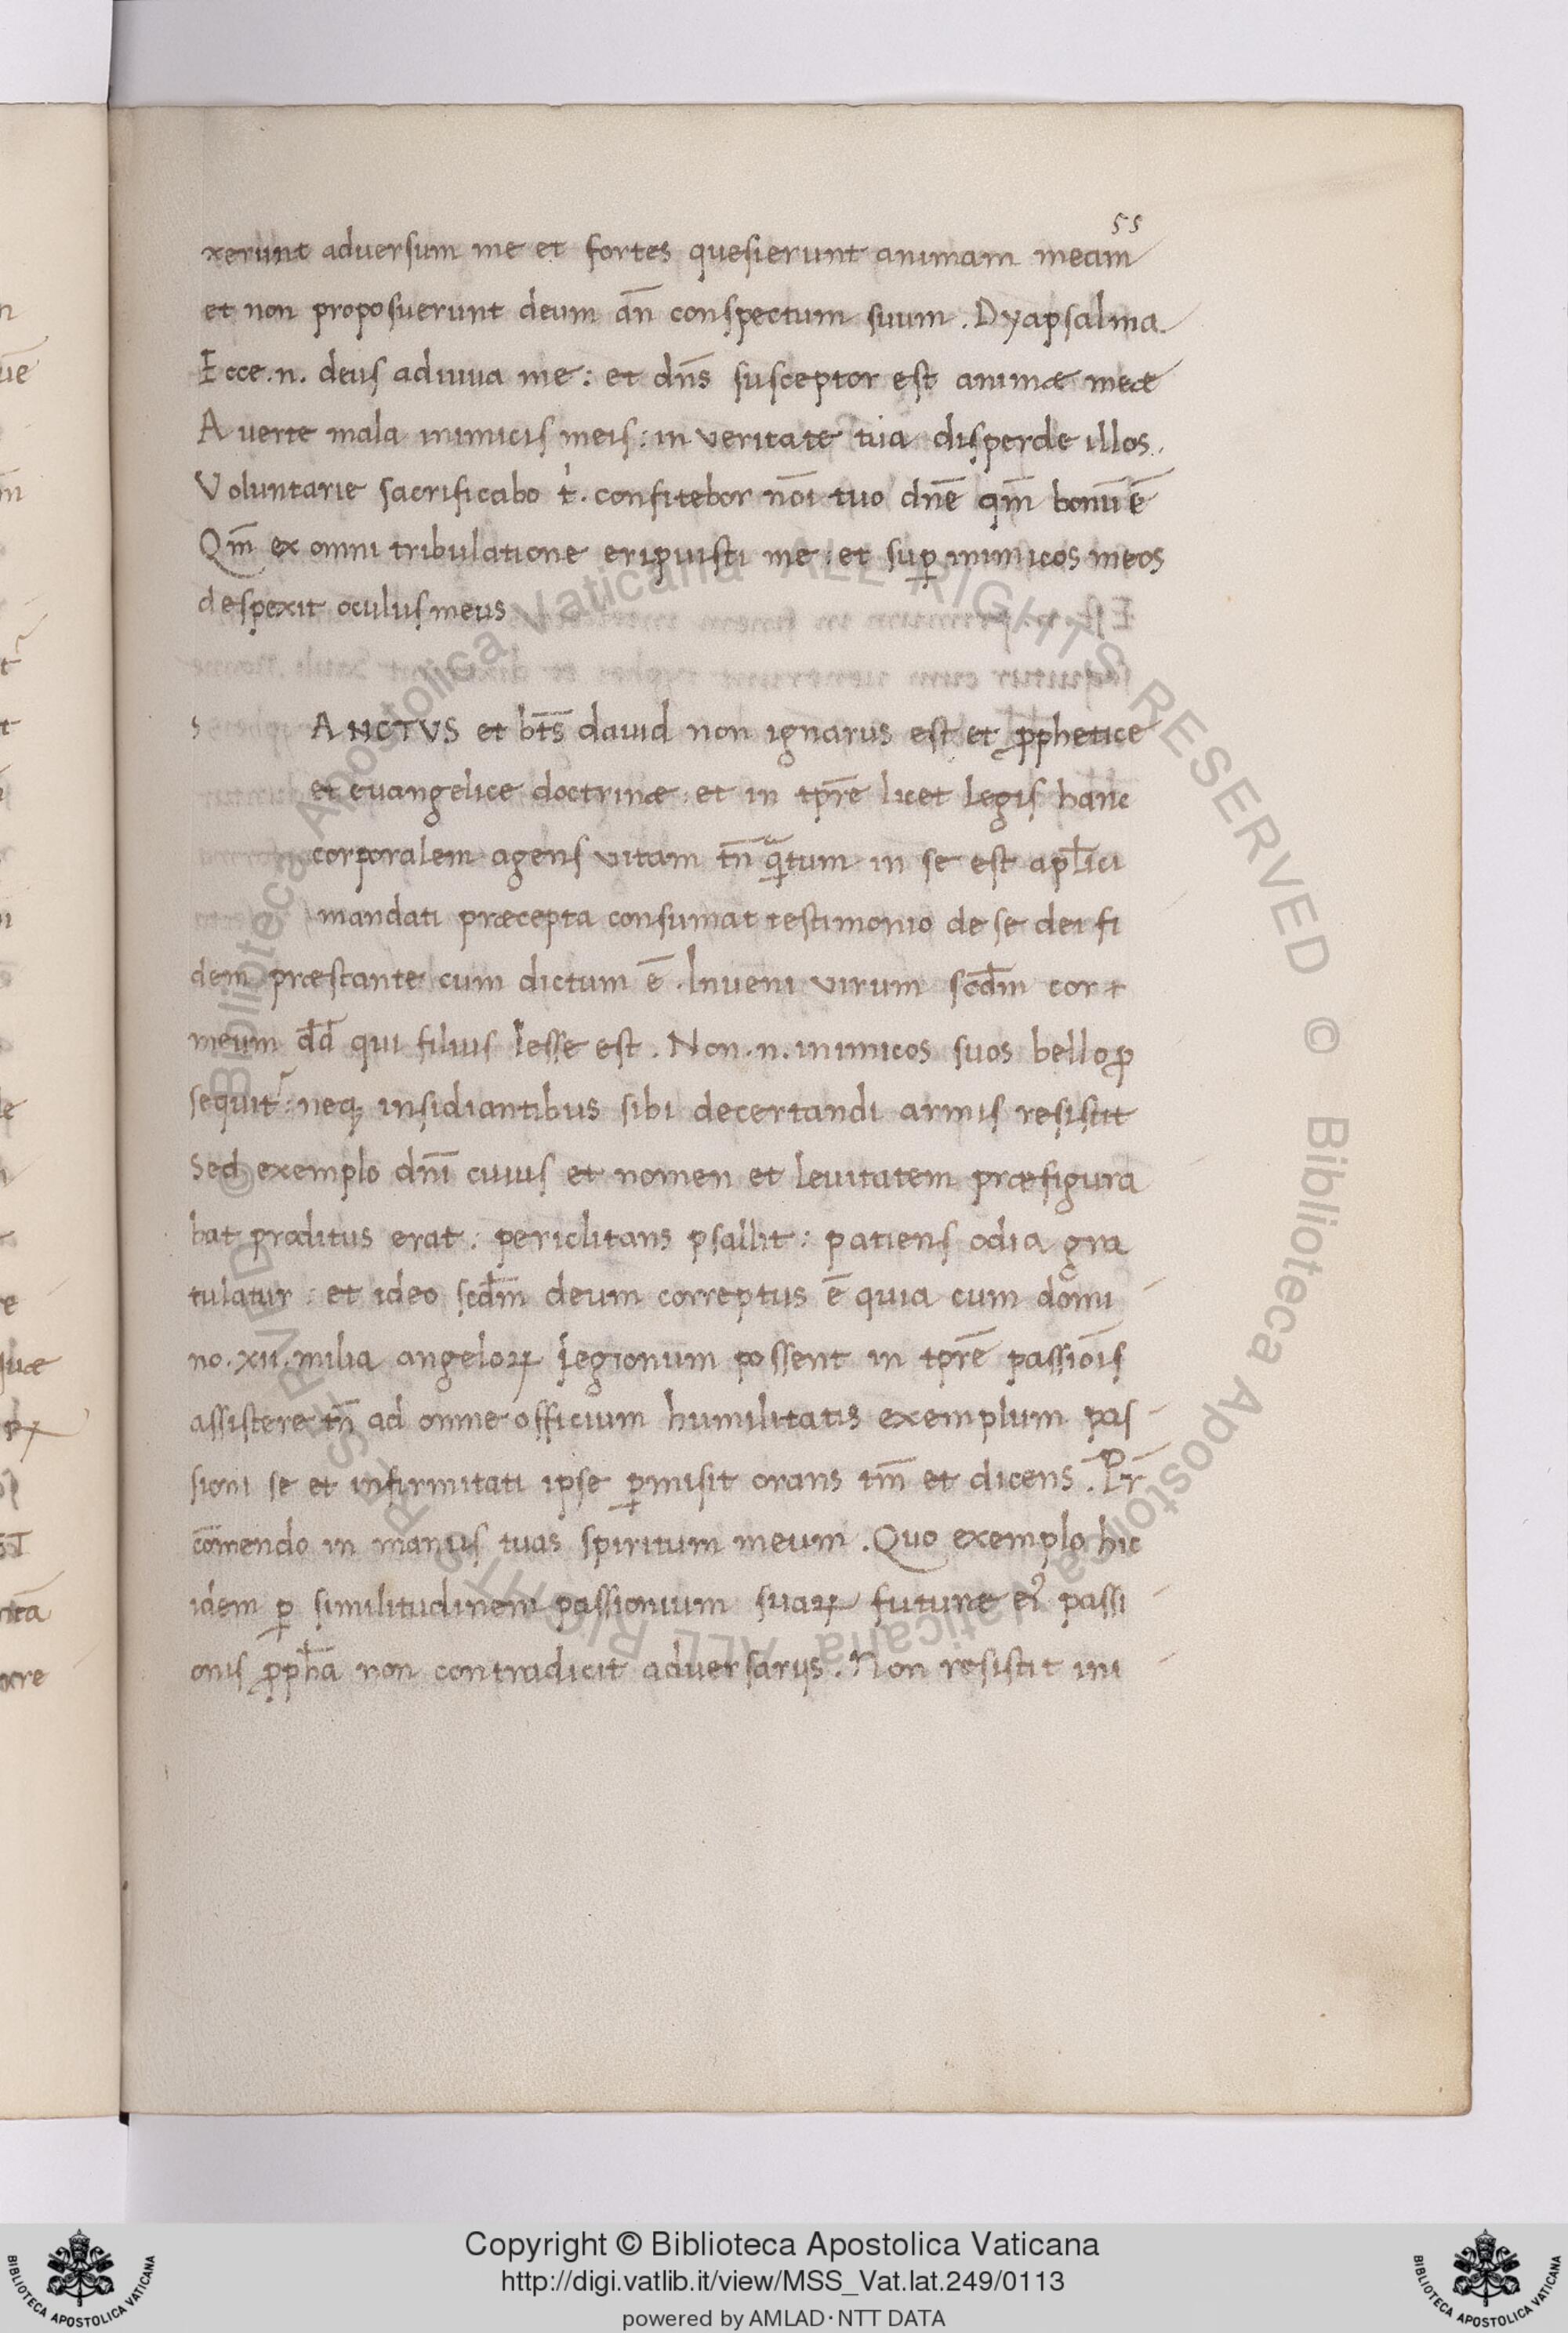 55
xerunt adversum me et fortes quesierunt animam meam
et non proposuerunt deum an̄ conspectum suum. Dyapsalma.
Ecce.n. deus adiuua me: et dn̄s susceptor est animæ meæ
Auerte mala inimicis meis: in veritate tua disperde illos.
Voluntarie sacrificabo t̍. confitebor nōi tuo dn̄e qm̄ bonū ē
Qm̄ ex omni tribulatione eripuisti me: et suꝑ inimicos meos
despexit oculus meus
s ANCTVS et bt̄s dauid non ignarus est et ꝓphetice
et euangelice doctrinæ: et in tp̄re licet legis hanc
corporalem agens vitam tn̄ qᵃtum in se est apl̄ici
mandati præcepta consumat testimonio de se dei fi
dem præstante cum dictum ē. Inueni virum scd̄m cor
meum dd̄ qui filius Iesse est. Non.n. inimicos suos bello ꝓ
sequit᷑: neqꝫ insidiantibus sibi decertandi armis resistit
Sed exemplo dn̄i cuius et nomen et leuitatem præfigura
bat proditus erat: periclitans psallit: patiens odia gra
tulatur: et ideo scd̄m deum correptus ē quia cum domi
no.xii.milia angeloꝝ legionum possent in tp̄re passiōis
assistere tn̄ ad omne officium humilitatis exemplum pas
sioni se et infirmitati ipse ꝑmisit orans tm̄ et dicens. Pr̄
cōmendo in manus tuas spiritum meum. Quo exemplo hic
idem ꝑ similitudinem passionum suaꝝ futuræ eiꝰ passi
onis ꝓph̄a non contradicit adversarijs. Non resistit ini
Copyright © Biblioteca Apostolica Vaticana
http://digi.vatlib.it/view/MSS_Vat.lat.249/0113
powered by AMLAD·NTT DATA